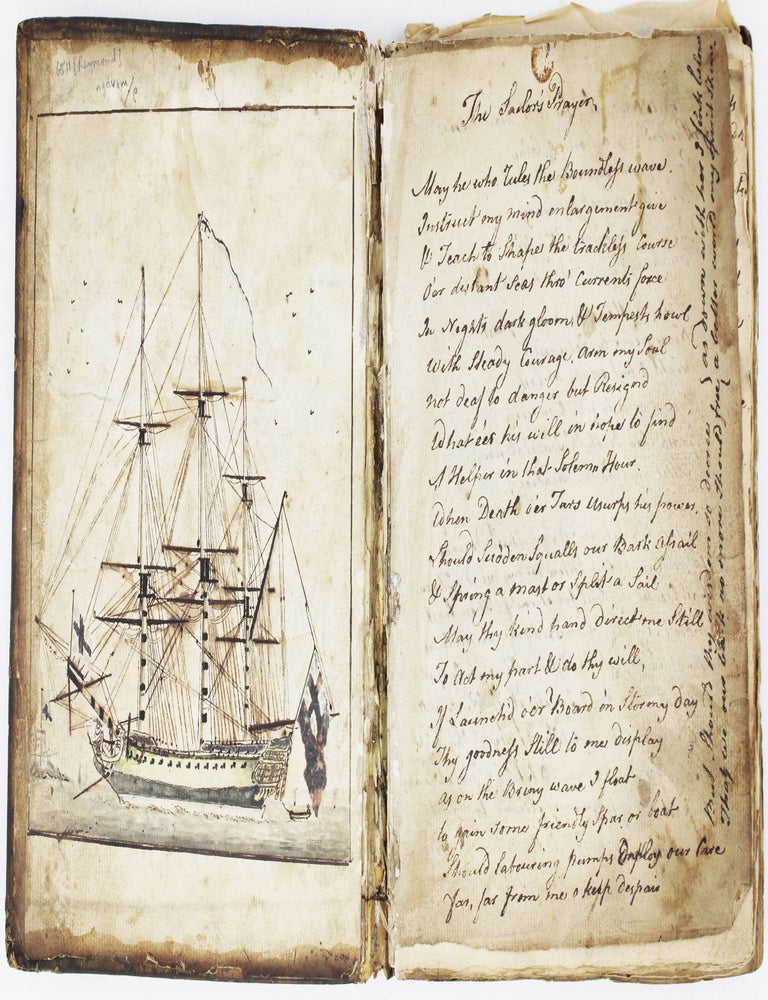 The Sailor's Prayer,
May he who rules the Boundless wave.
Instruct my mind enlargement give
& Teach to Shape the trackless Course
O'er distant Seas thro' Currents force
In Nights dark gloom, & Tempests howl
With Steady Courage. Arm my Soul
not deaf to danger but Resignd
What e'er his will in hope to find
A Helper in that Solemn Hour.
When Death o'er Tars Usurps his power,
Should Sudden Squalls our Bark assail
& Spring a mast or Split a Sail
May thy kind hand direct me Still
To Act my part & do thy will,
If Launch'd o'er Board in Stormy day
Thy goodness Still to me display
as on the Briny wave I float
to gain some friendly Spar or boat
Should labouring pumps Employ our Care
Far, far from me o keep despair
But Should thy wisdom so decree
That we our bark no more Should free
as down with her I sink below
a better world my spirit